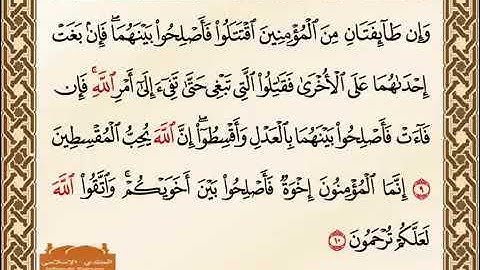 وَإِن طَآئِفَتَانِ مِنَ ٱلْمُؤْمِنِينَ ٱقْتَتَلُوا۟ فَأَصْلِحُوا۟ بَيْنَهُمَا ۖ فَإِنۢ بَغَتْ
إِحْدَىٰهُمَا عَلَى ٱلْأُخْرَىٰ فَقَـٰتِلُوا۟ ٱلَّتِى تَبْغِى حَتَّىٰ تَفِىٓءَ إِلَىٰٓ أَمْرِ ٱللَّهِ ۚ فَإِن
فَآءَتْ فَأَصْلِحُوا۟ بَيْنَهُمَا بِٱلْعَدْلِ وَأَقْسِطُوٓا۟ ۖ إِنَّ ٱللَّهَ يُحِبُّ ٱلْمُقْسِطِينَ
٩ إِنَّمَا ٱلْمُؤْمِنُونَ إِخْوَةٌ فَأَصْلِحُوا۟ بَيْنَ أَخَوَيْكُمْ ۚ وَٱتَّقُوا۟ ٱللَّهَ
لَعَلَّكُمْ تُرْحَمُونَ ١٠
المنتدى الإسلامي